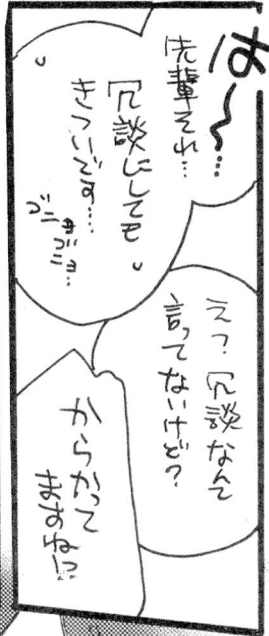 は〜〜…
先輩それ…
冗談にしても
きついです…
ゴニョゴニョ…
えっ?冗談なんて
言ってないけど?
からかって
ますね!?